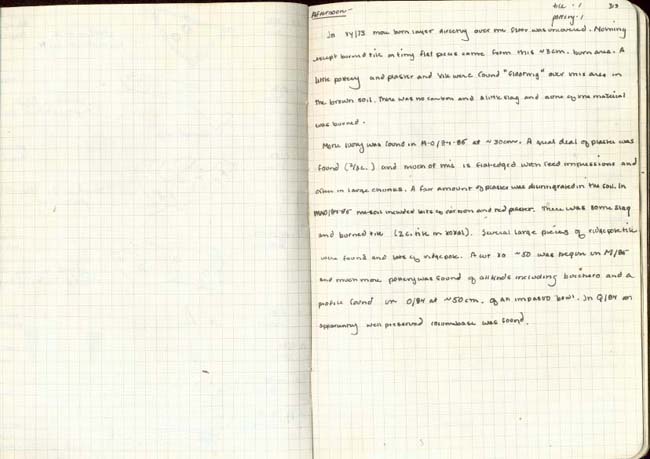 tile - 1
pottery - 1
313
Afternoon -
In XY/73 more burn layer directly over the floor was uncovered. Nothing
except burned tile in tiny flat pieces came from this ~3cm. burn area. A
little pottery and plaster and tile were found "floating" over this area in
the brown soil. There was no carbon and a little slag and none of the material
was burned.
More ivory was found in M-O/84-85 at ~30cm. A great deal of plaster was
found (2/3c.) and much of this is flat-edged with reed impressions and
often in large chunks. A fair amount of plaster was disintegrated in the soil. In
the soil included bits of carbon and red plaster. There was some slag
and burned tile (2c. tile in total). Several large pieces of ridgepole tile
were found and lots of ridgepole. A cut to ~50 was begun in M/85
and much more pottery was found of all kinds including bucchero and a
profile found in O/84 at ~50cm. of an impasto bowl. In Q/84 an
apparently well preserved columnbase was found.